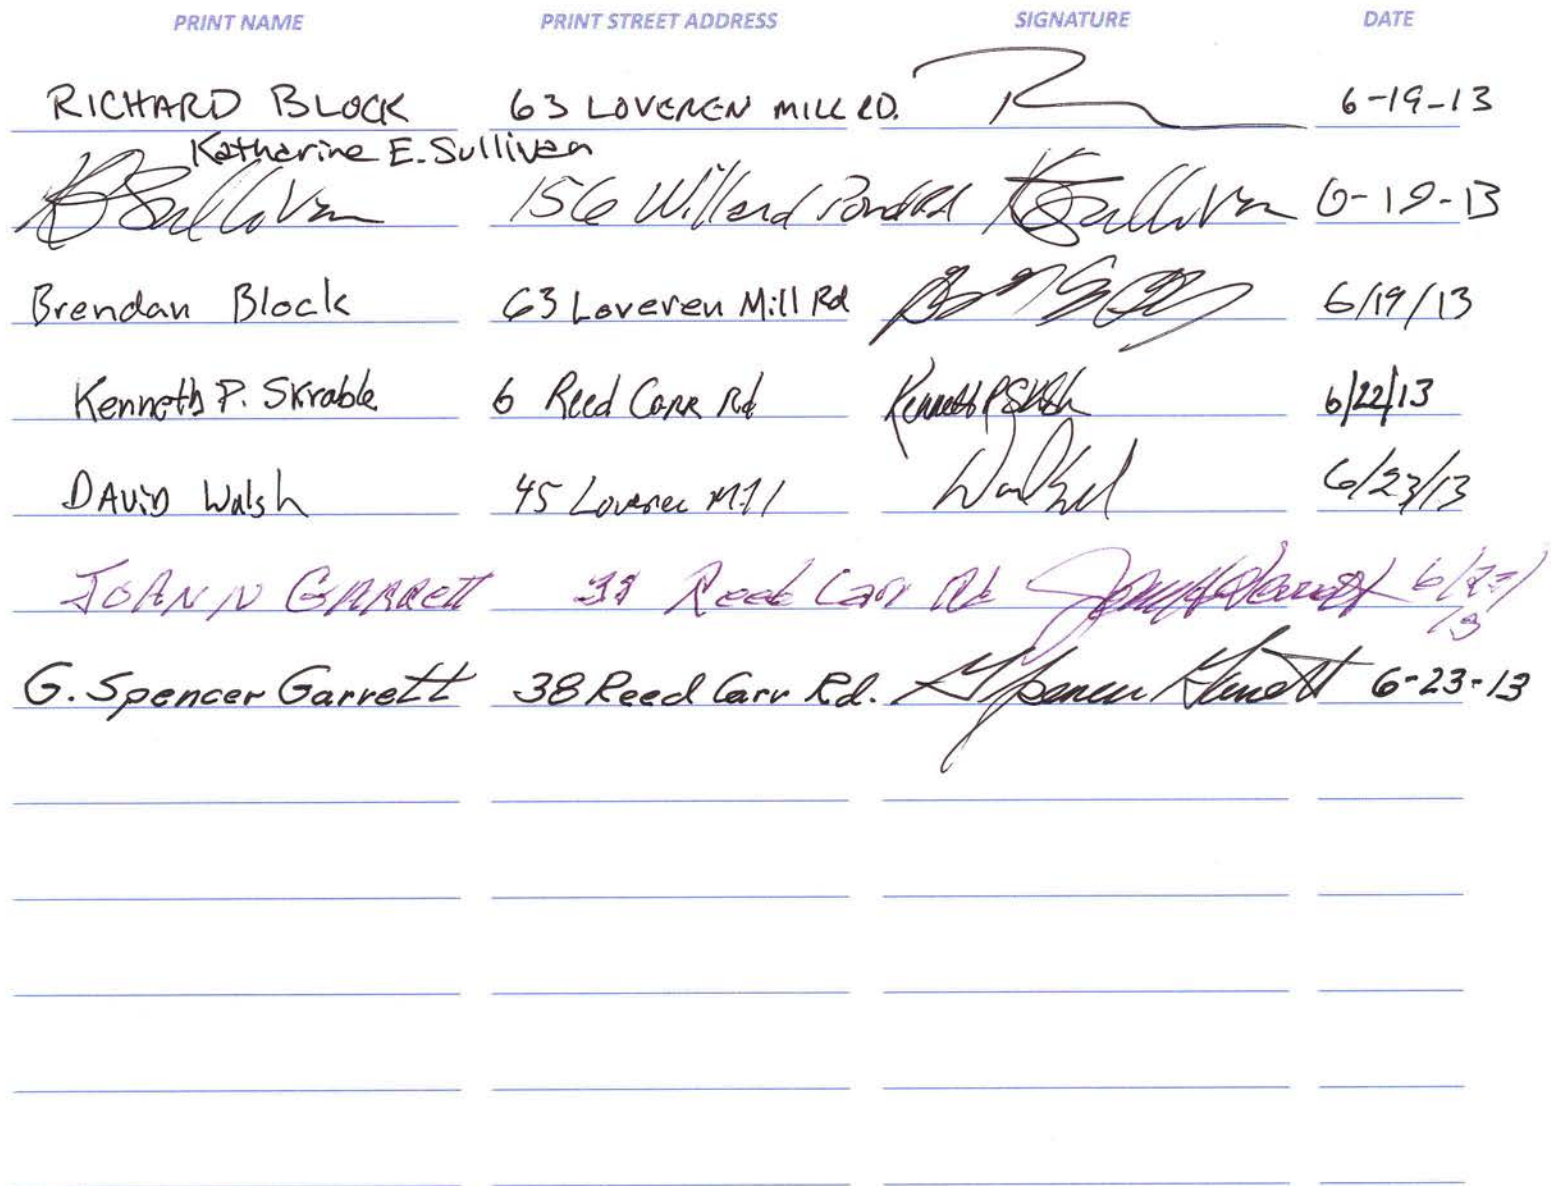 PRINT NAME PRINT STREET ADDRESS SIGNATURE DATE
RICHARD BLOCK 63 LOVEREN MILL RD. 6-19-13
Katharine E. Sullivan
KESullivan 156 Willard Pond Rd KESullivan 6-19-13
Brendan Block 63 Loveren Mill Rd 6/19/13
Kenneth P. Skrable 6 Reed Carr Rd 6/22/13
DAVID Walsh 45 Loveren Mill 6/23/13
JOANN GARRETT Reed Carr Rd 6/23/
13
G. Spencer Garrett 38 Reed Carr Rd. G Spencer Garrett 6-23-13